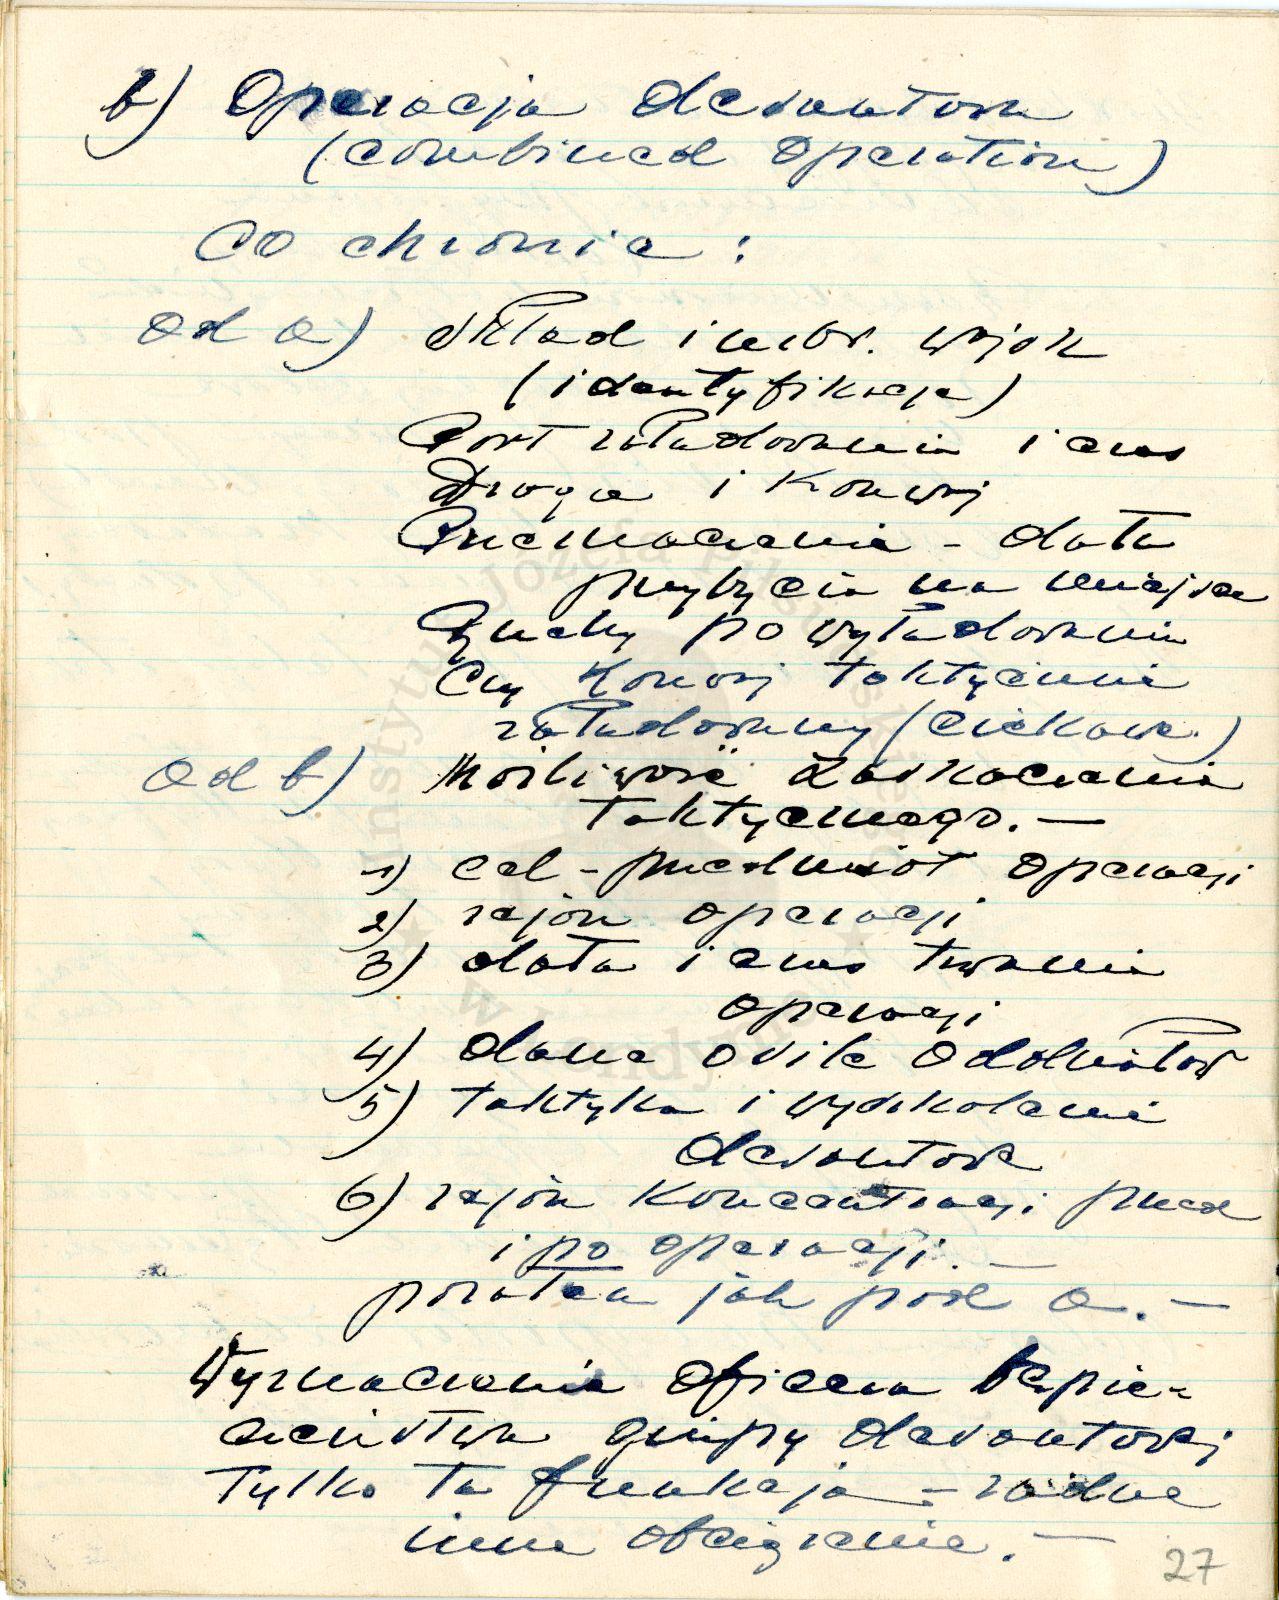 b) Operacja desantowa
(combined operation)
Co chronić:
Od a) Skład i uzbr. wojsk
(identyfikacja)
Port załadowania i czas
Droga i Konwój
Przeznaczenie - data
przybycia na miejsce
Ruchy po wyładowaniu
Czy Konwój taktycznie
załadowany (ciekawe)
Od b) Możliwość zaskoczenia
taktycznego. —
1) cel - przedmiot operacji
2) rejon operacji
3) data i czas trwania
operacji
4) dane o sile oddziałów
5) taktyka i wyszkolenie
desantowe
6) rejon koncentracji przed
i po operacji. —
pozatem jak pod a. —
Wyznaczenie oficera bezpie-
czeństwa grupy desantowej
Tylko ta funkcja - żadne
inne obciążenie. —
27
Instytut Józefa Piłsudskiego
w Londynie